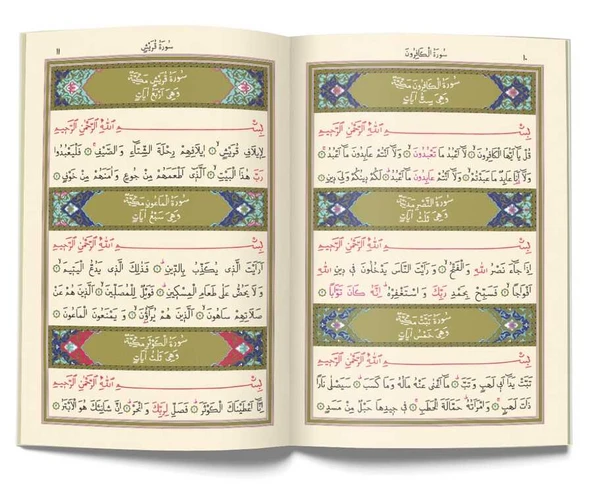 سُورَةُ الْكَافِرُونَ
١٠
سُورَةُ الْكَافِرُونَ مَكِّيَّةٌ
وَهِيَ سِتُّ آيَاتٍ
بِسْمِ اللّٰهِ الرَّحْمٰنِ الرَّحِيمِ
قُلْ يَا اَيُّهَا الْكَافِرُونَۙ لَا اَعْبُدُ مَا تَعْبُدُونَۙ وَلَا اَنْتُمْ عَابِدُونَ مَا اَعْبُدُۚ
وَلَا اَنَا عَابِدٌ مَا عَبَدْتُمْۙ وَلَا اَنْتُمْ عَابِدُونَ مَا اَعْبُدُۜ لَكُمْ دِينُكُمْ وَلِيَ دِينِ
سُورَةُ النَّصْرِ مَكِّيَّةٌ
وَهِيَ ثَلَاثُ آيَاتٍ
بِسْمِ اللّٰهِ الرَّحْمٰنِ الرَّحِيمِ
اِذَا جَاءَ نَصْرُ اللّٰهِ وَالْفَتْحُۙ وَرَاَيْتَ النَّاسَ يَدْخُلُونَ فِي دِينِ اللّٰهِ
اَفْوَاجًاۙ فَسَبِّحْ بِحَمْدِ رَبِّكَ وَاسْتَغْفِرْهُۜ اِنَّهُ كَانَ تَوَّابًا
سُورَةُ تَبَّتْ مَكِّيَّةٌ
وَهِيَ خَمْسُ آيَاتٍ
بِسْمِ اللّٰهِ الرَّحْمٰنِ الرَّحِيمِ
تَبَّتْ يَدَا اَبِي لَهَبٍ وَتَبَّۜ مَا اَغْنٰى عَنْهُ مَالُهُ وَمَا كَسَبَۜ سَيَصْلٰى نَارًا
ذَاتَ لَهَبٍۚ وَامْرَاَتُهُۜ حَمَّالَةَ الْحَطَبِۚ فِي جِيدِهَا حَبْلٌ مِنْ مَسَدٍ
سُورَةُ قُرَيْشٍ
١١
سُورَةُ قُرَيْشٍ مَكِّيَّةٌ
وَهِيَ اَرْبَعُ آيَاتٍ
بِسْمِ اللّٰهِ الرَّحْمٰنِ الرَّحِيمِ
لِاِيلَافِ قُرَيْشٍۙ اِيلَافِهِمْ رِحْلَةَ الشِّتَاءِ وَالصَّيْفِۚ فَلْيَعْبُدُوا
رَبَّ هٰذَا الْبَيْتِۙ اَلَّذِي اَطْعَمَهُمْ مِنْ جُوعٍ وَاٰمَنَهُمْ مِنْ خَوْفٍ
سُورَةُ الْمَاعُونِ مَكِّيَّةٌ
وَهِيَ سَبْعُ آيَاتٍ
بِسْمِ اللّٰهِ الرَّحْمٰنِ الرَّحِيمِ
اَرَاَيْتَ الَّذِي يُكَذِّبُ بِالدِّينِۜ فَذٰلِكَ الَّذِي يَدُعُّ الْيَتِيمَۙ
وَلَا يَحُضُّ عَلٰى طَعَامِ الْمِسْكِينِۜ فَوَيْلٌ لِلْمُصَلِّينَۙ اَلَّذِينَ هُمْ عَنْ
صَلَاتِهِمْ سَاهُونَۙ اَلَّذِينَ هُمْ يُرَاؤُنَۙ وَيَمْنَعُونَ الْمَاعُونَ
سُورَةُ الْكَوْثَرِ مَكِّيَّةٌ
وَهِيَ ثَلَاثُ آيَاتٍ
بِسْمِ اللّٰهِ الرَّحْمٰنِ الرَّحِيمِ
اِنَّا اَعْطَيْنَاكَ الْكَوْثَرَۜ فَصَلِّ لِرَبِّكَ وَانْحَرْۜ اِنَّ شَانِئَكَ هُوَ الْاَبْتَرُ